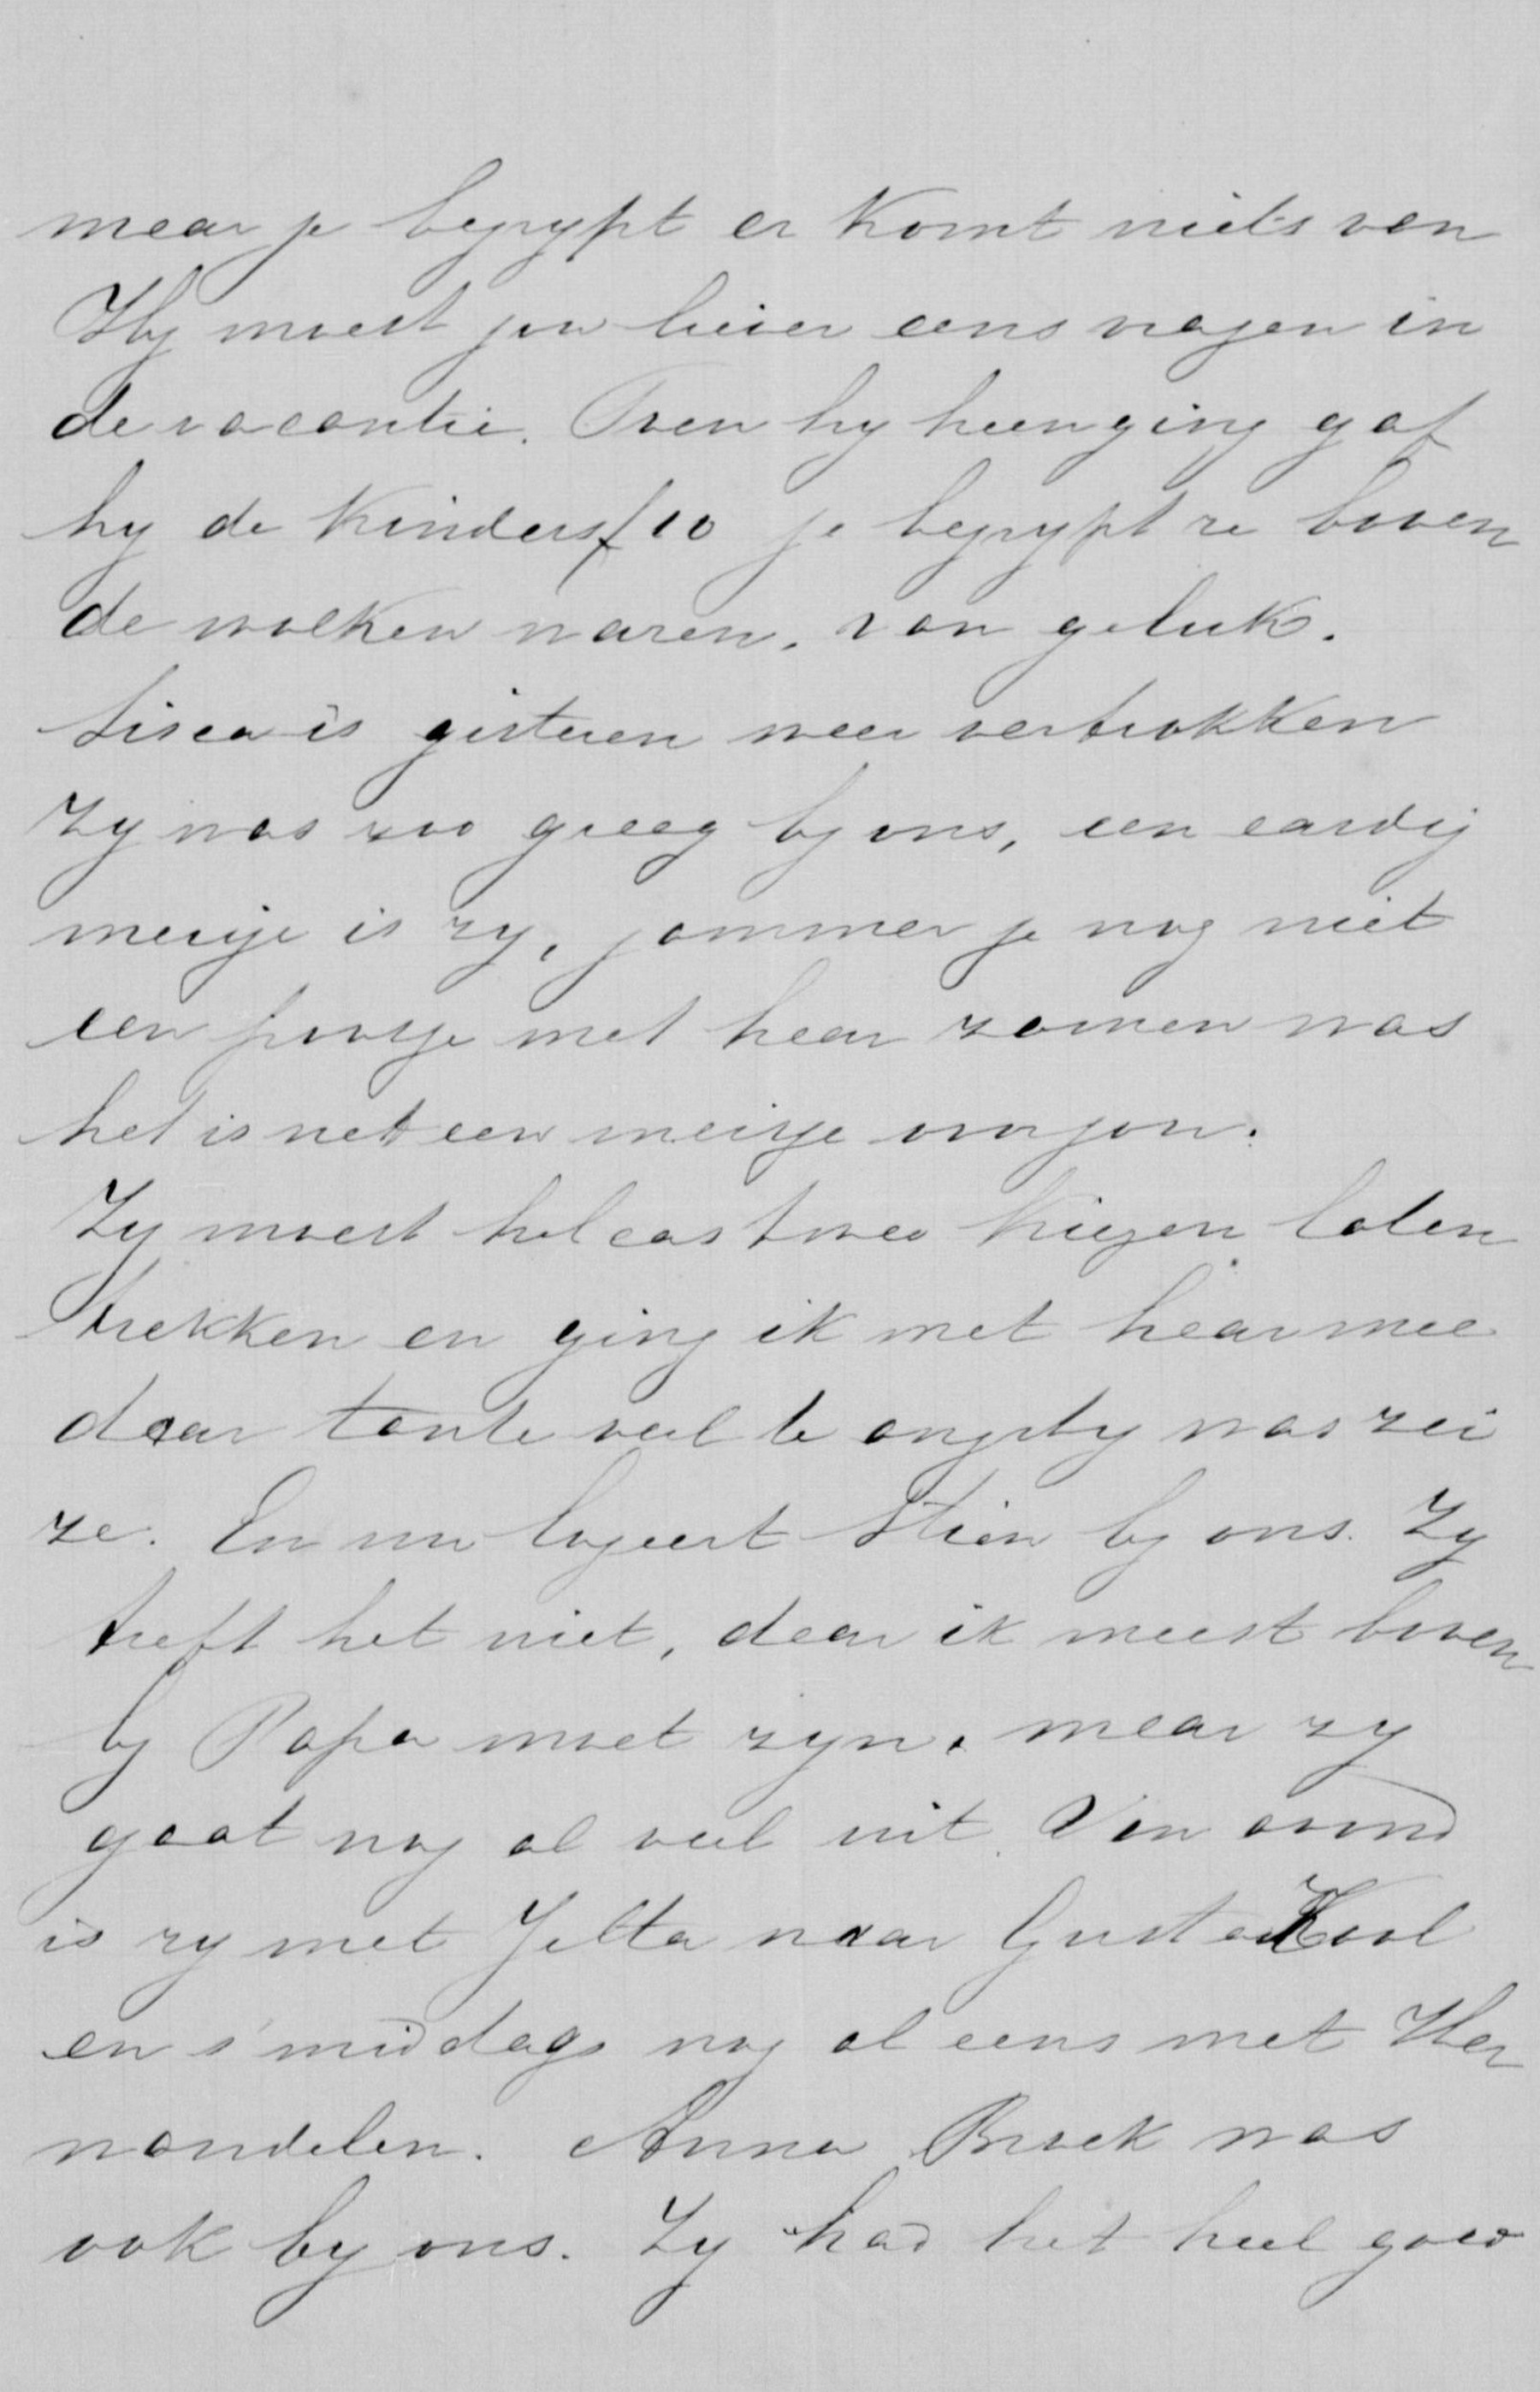 maar je begrypt er komt niets van
Hy moest jou liever eens vragen in
de vacantie. Toen hy heenging gaf
hy de kinders f 10 je begrypt ze boven
de wolken waren, van geluk.
Lisca is gisteren weer vertrokken
Zy was zoo graag by ons, een aardig
meisje is zy, jammer je nog niet
een poosje met haar zamen was
het is net een meisje voor jou.
Zy moest helaas twee kiezen laten
trekken en ging ik met haar mee
daar tante veel te angstig was zei
ze. En nu logeert Stien by ons. Zy
treft het niet, daar ik meest boven
by Papa moet zyn, maar zy
gaat nog al veel uit. Van avond
is zy met Jetta naar Gusta Kool
en s'middags nog al eens met Her
wandelen. Anna Broek was
ook by ons. Zy had het heel goed